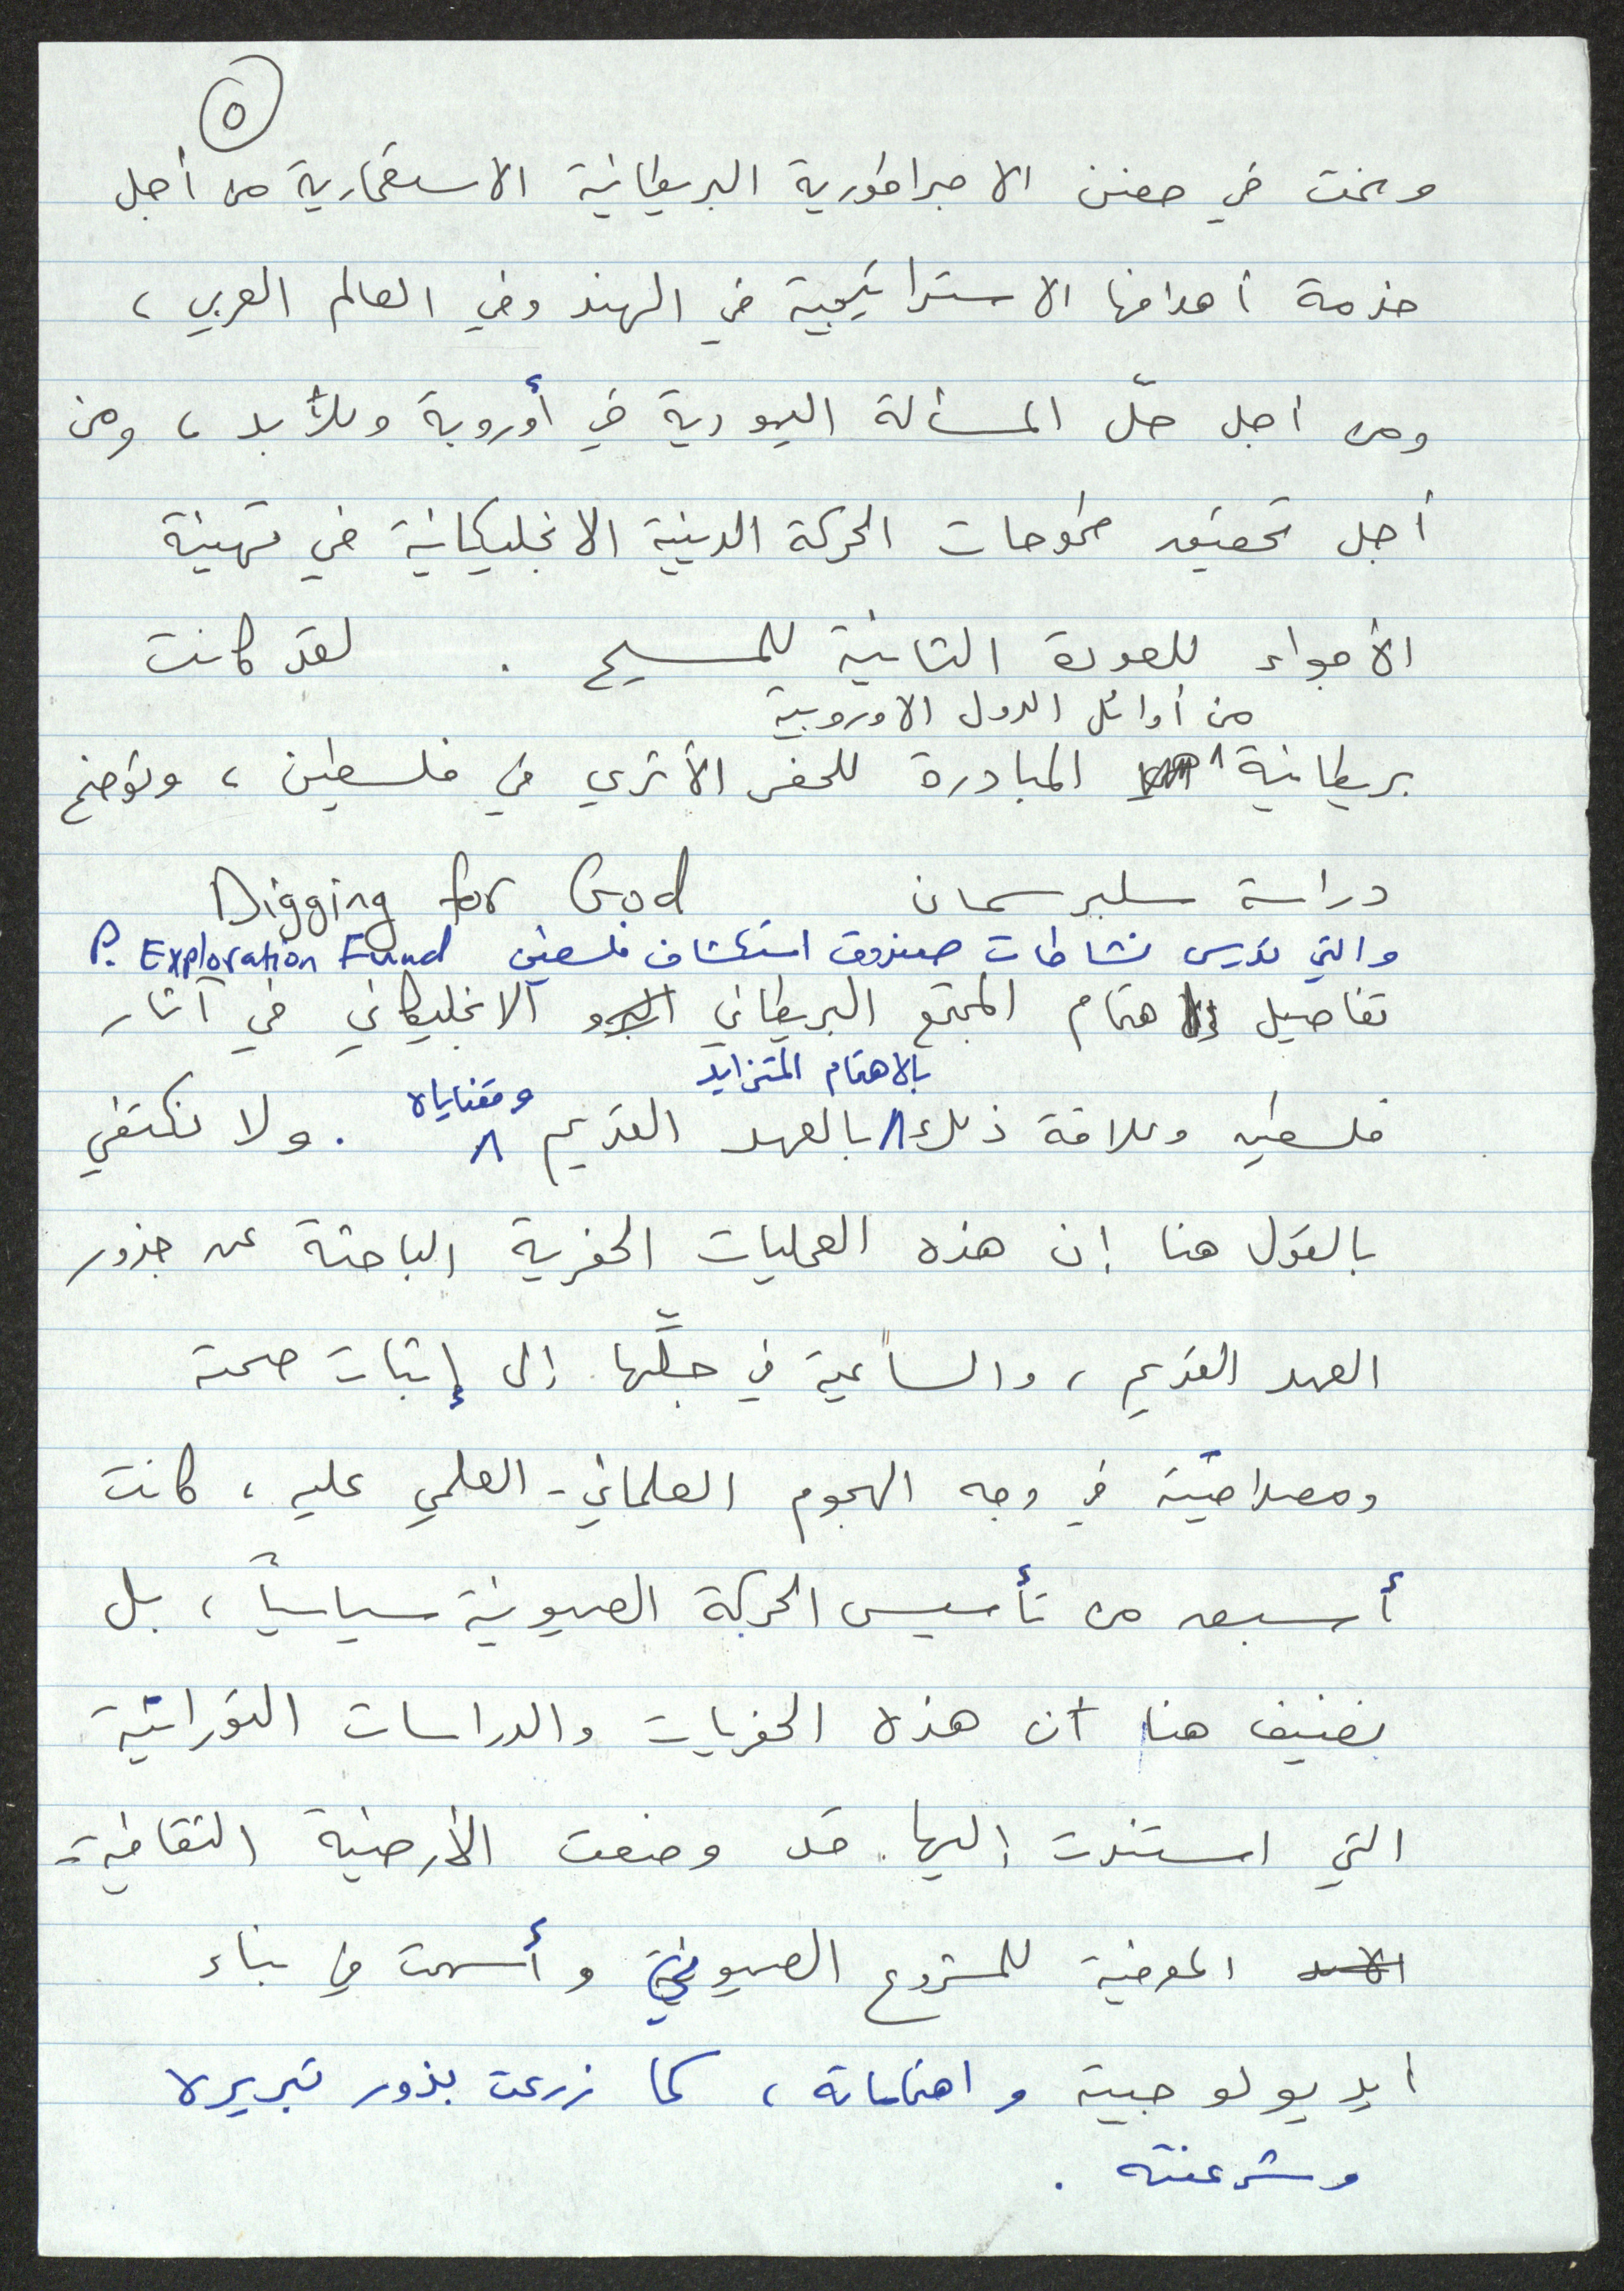 ٥
ونمت في حضن الامبراطورية البريطانية الاستعمارية من أجل
خدمة أهدافها الاستراتيجية في الهند وفي العالم العربي ،
ومن اجل حلّ المسألة اليهودية في أوروبة وللأبد ، ومن
أجل تحقيق طموحات الحركة الدينية الانجليكانية في تهيئة
الأجواء للعودة الثانية للمسيح . لقد كانت
من أوائل الدول الاوروبية
بريطانية ٨ المبادرة للحفر الأثري في فلسطين ، وتوضح
دراسة سلبرسمان Digging for God
والتي تدرس نشاطات صندوق استكشاف فلسطين P. Exploration Fund
تفاصيل اهتمام المجتمع البريطاني الانجليكاني في آثار
بالاهتمام المتزايد
وقضاياه
فلسطين وعلاقة ذلك ٨ بالعهد القديم ٨ . ولا نكتفي
بالقول هنا إن هذه العمليات الحفرية الباحثة عن جذور
العهد القديم ، والساعية في جلّها إلى إثبات صحته
ومصداقيته في وجه الهجوم العلماني - العلمي عليه ، كانت
أسبق من تأسيس الحركة الصهيونية سياسياً ، بل
نضيف هنا أن هذه الحفريات والدراسات التوراتية
التي استندت إليها قد وضعت الأرضية الثقافية -
المعرفية للمشروع الصهيوني وأسهمت في بناء
ايديولوجيته واهتماماته ، كما زرعت بذور تبريره
وشرعنته .